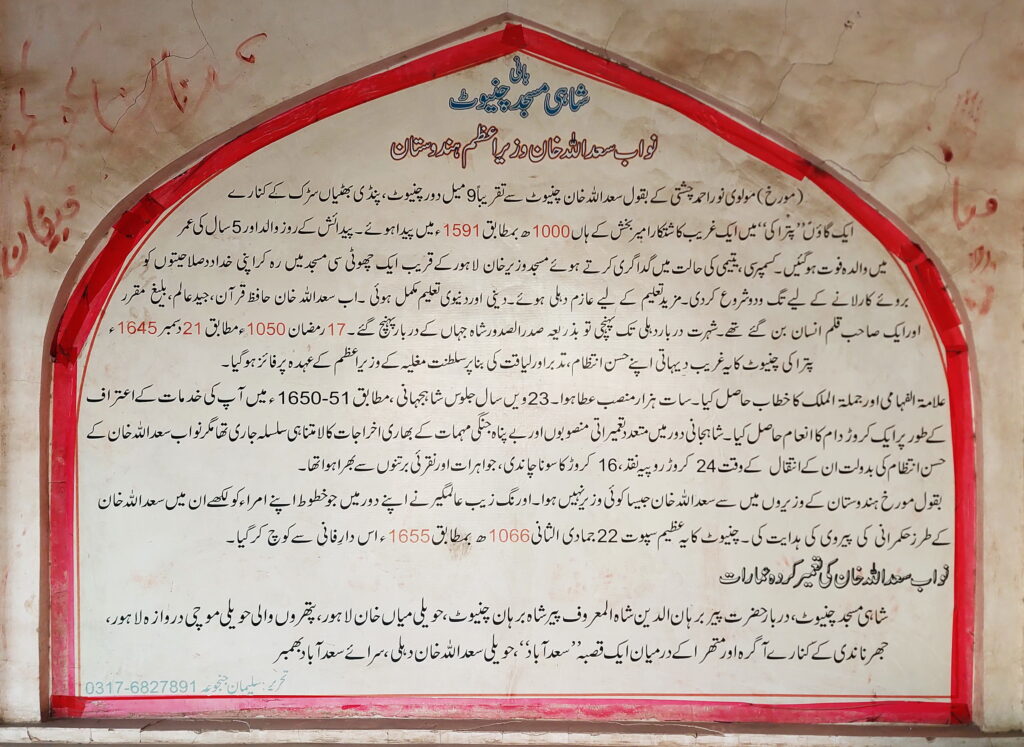 بانی
شاہی مسجد چنیوٹ
نواب سعد اللہ خان وزیر اعظم ہندوستان
(مورخ) مولوی نور احمد چشتی کے بقول سعد اللہ خان چنیوٹ سے تقریباً 9 میل دور چنیوٹ، پنڈی بھٹیاں سڑک کے کنارے
ایک گاؤں ”پتراکی“ میں ایک غریب کاشتکار امیر بخش کے ہاں 1000 ھ بمطابق 1591 ء میں پیدا ہوئے۔ پیدائش کے روز والد اور 5 سال کی عمر
میں والدہ فوت ہو گئیں۔ کسمپرسی، یتیمی کی حالت میں گداگری کرتے ہوئے مسجد وزیر خان لاہور کے قریب ایک چھوٹی سی مسجد میں رہ کر اپنی خداد صلاحیتوں کو
بروئے کار لانے کے لیے تگ و دو شروع کر دی۔ مزید تعلیم کے لیے عازم دہلی ہوئے۔ دینی اور دنیوی تعلیم مکمل ہوئی ۔ اب سعد اللہ خان حافظ قرآن، جید عالم، بلیغ مقرر
اور ایک صاحب قلم انسان بن گئے تھے۔ شہرت دربار دہلی تک پہنچی تو بذریعہ صدر الصدور شاہ جہاں کے دربار پہنچ گئے۔ 17 رمضان 1050 ء مطابق 21 دسمبر 1645 ء
پتراکی چنیوٹ کا یہ غریب دیہاتی اپنے حسن انتظام، تدبر اور لیاقت کی بنا پر سلطنت مغلیہ کے وزیر اعظم کے عہدہ پر فائز ہو گیا۔
علامۃ الفہامی اور جملۃ الملک کا خطاب حاصل کیا۔ سات ہزار منصب عطا ہوا۔ 23 ویں سال جلوس شاہجہانی، مطابق 51-1650 ء میں آپ کی خدمات کے اعتراف
کے طور پر ایک کروڑ دام کا انعام حاصل کیا۔ شاہجانی دور میں متعدد تعمیراتی منصوبوں اور بے پناہ جنگی مہمات کے بھاری اخراجات کا لامتناہی سلسلہ جاری تھا مگر نواب سعد اللہ خان کے
حسن انتظام کی بدولت ان کے انتقال کے وقت 24 کروڑ روپیہ نقد، 16 کروڑ کا سونا چاندی، جواہرات اور نقرئی برتنوں سے بھرا ہوا تھا۔
بقول مورخ ہندوستان کے وزیروں میں سے سعد اللہ خان جیسا کوئی وزیر نہیں ہوا۔ اورنگ زیب عالمگیر نے اپنے دور میں جو خطوط اپنے امراء کو لکھے ان میں سعد اللہ خان
کے طرز حکمرانی کی پیروی کی ہدایت کی۔ چنیوٹ کا یہ عظیم سپوت 22 جمادی الثانی 1066 ھ بمطابق 1655 ء اس دارِ فانی سے کوچ کر گیا۔
نواب سعد اللہ خان کی تعمیر کردہ عمارات
شاہی مسجد چنیوٹ، دربار حضرت پیر برہان الدین شاہ المعروف پیر شاہ برہان چنیوٹ، حویلی میاں خان لاہور، پتھروں والی حویلی موچی دروازہ لاہور،
جھرنا ندی کے کنارے آگرہ اور متھرا کے درمیان ایک قصبہ ”سعد آباد“، حویلی سعد اللہ خان دہلی، سرائے سعد آباد بھمبر
تحریر: سلیمان جنجوعہ 0317-6827891